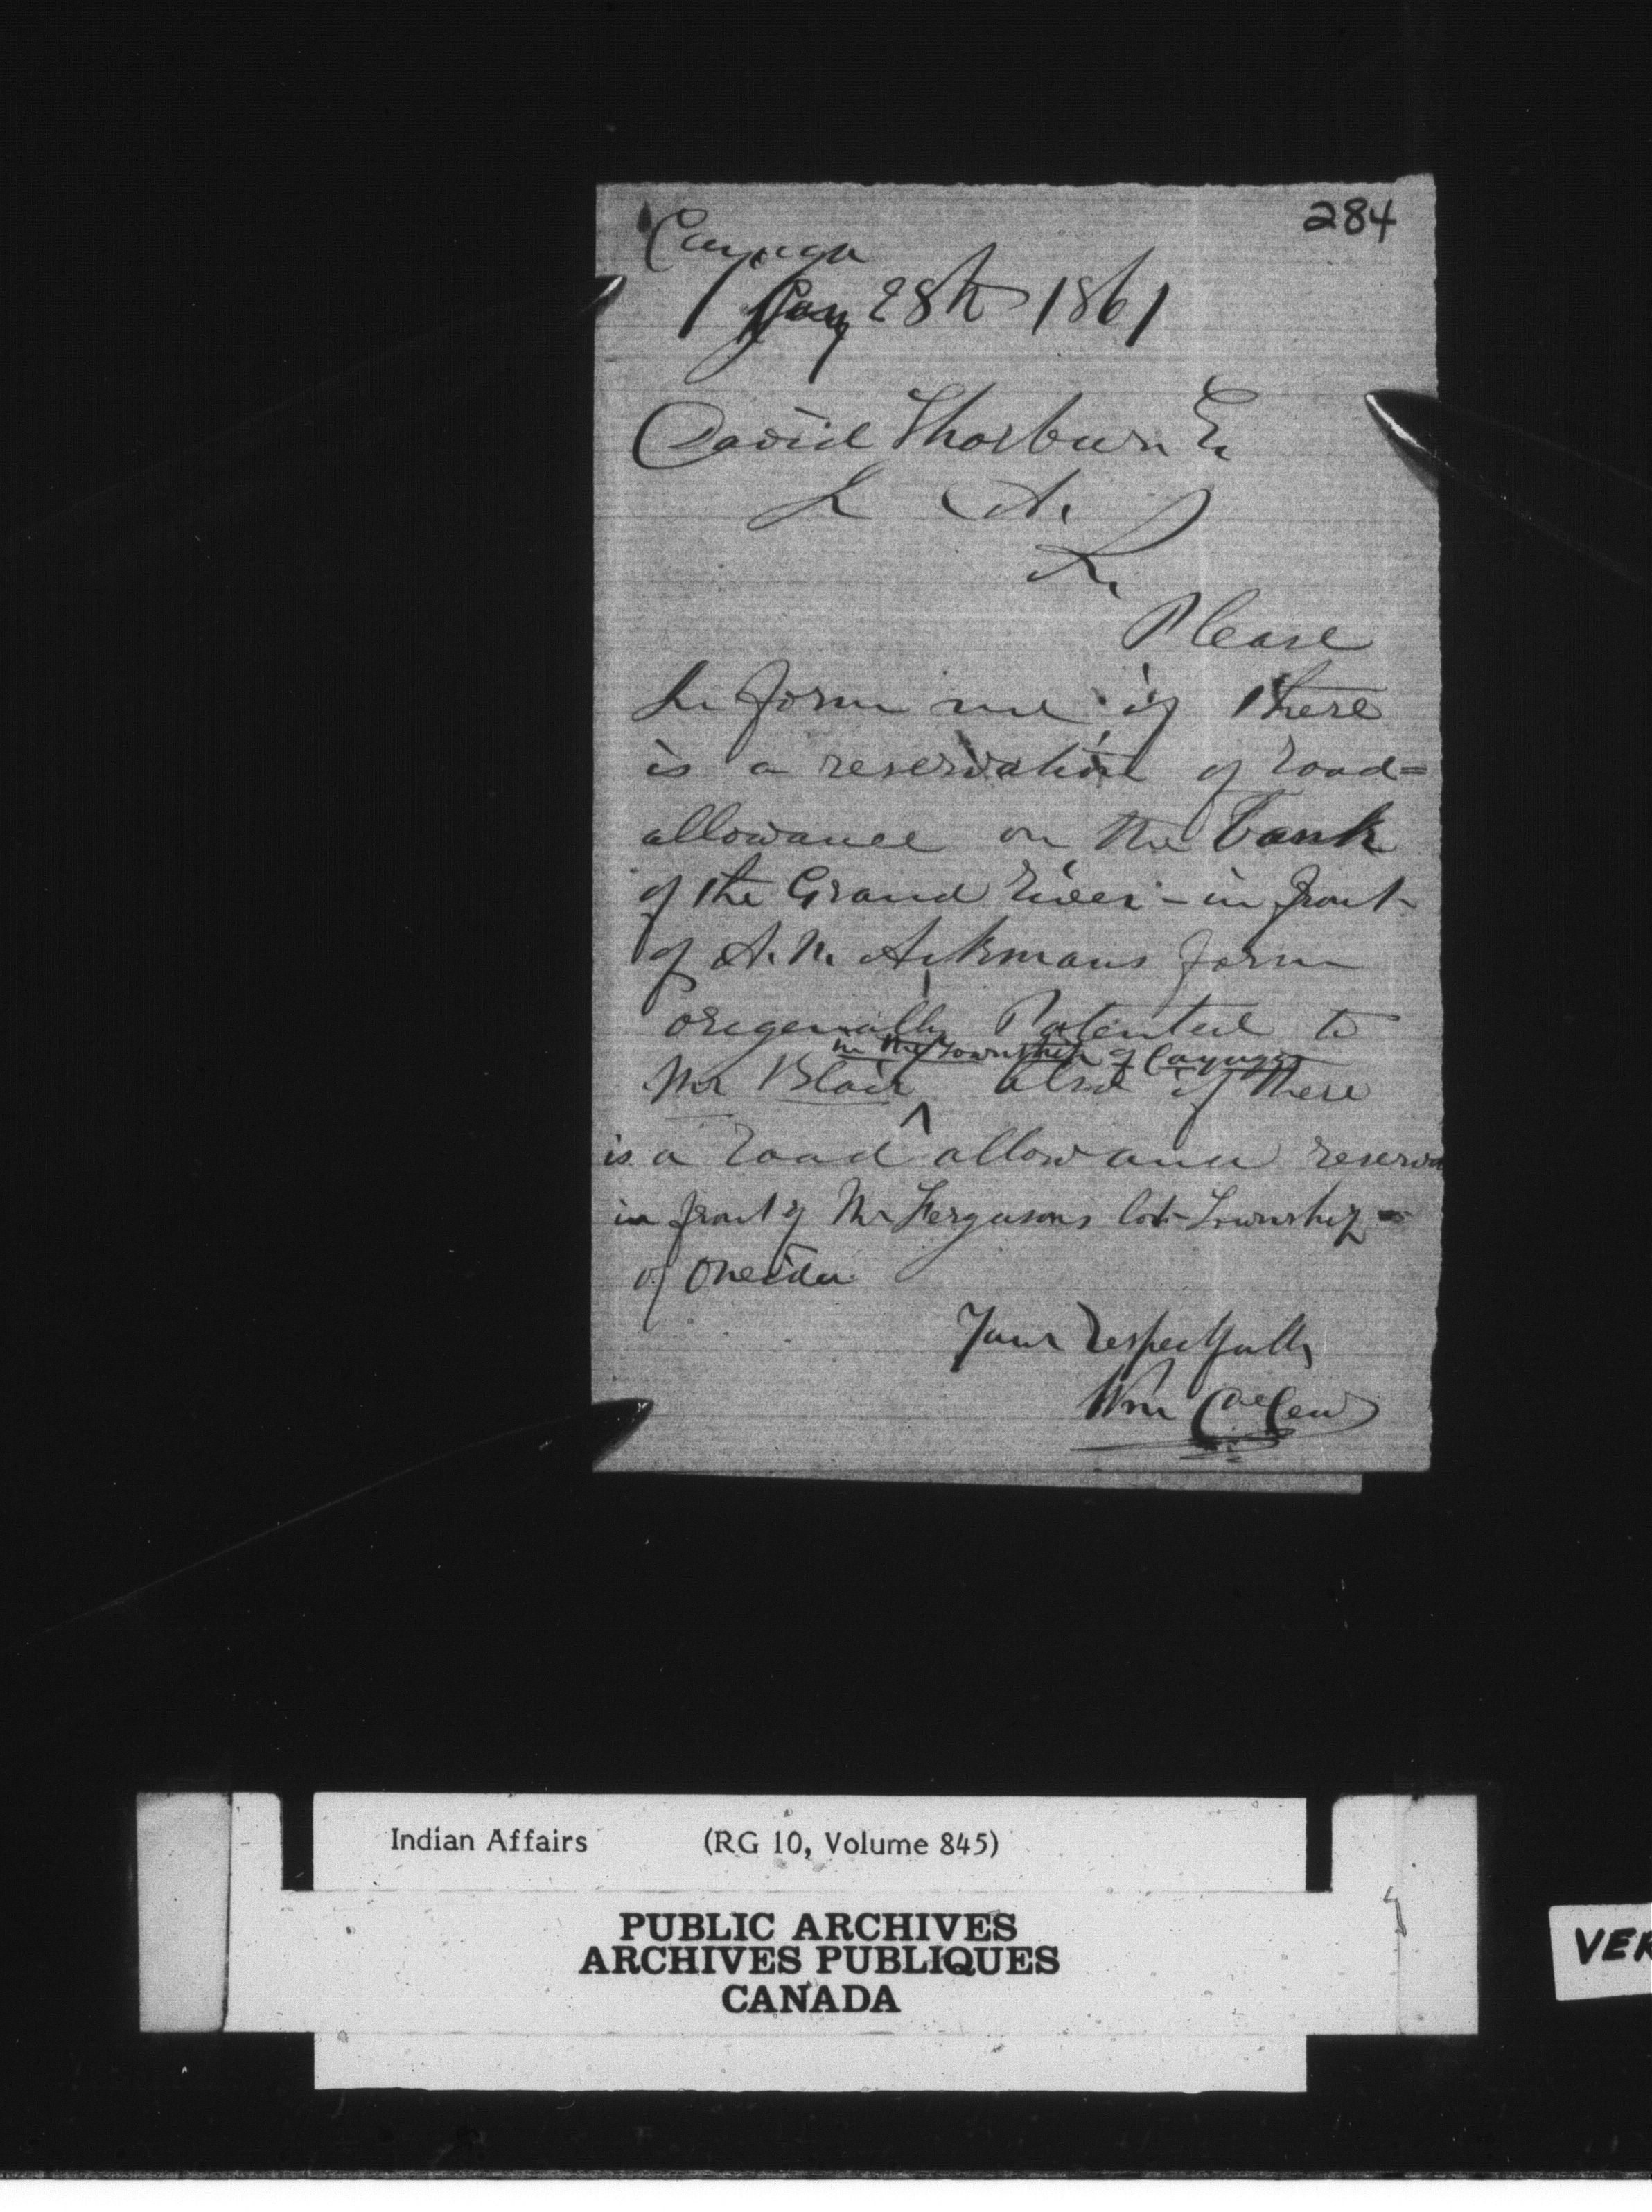 284
Cayuga
Jany 28th 1861
David Thorburn E
I A.
Please
In form me if there
is a reservation of road=
allowance on the Bank
of the Grand River - in front
of A. N. Aikmans farm
origenally Patented to
in the Township of Cayuga
Mr Blair ^ also if there
is a road allowance reserva
in front of Mr Fergusons lot - Township
of Oneida
Your Respectfully
Wm
Indian Affairs (RG 10, Volume 845)
PUBLIC ARCHIVES
ARCHIVES PUBLIQUES
CANADA
VER